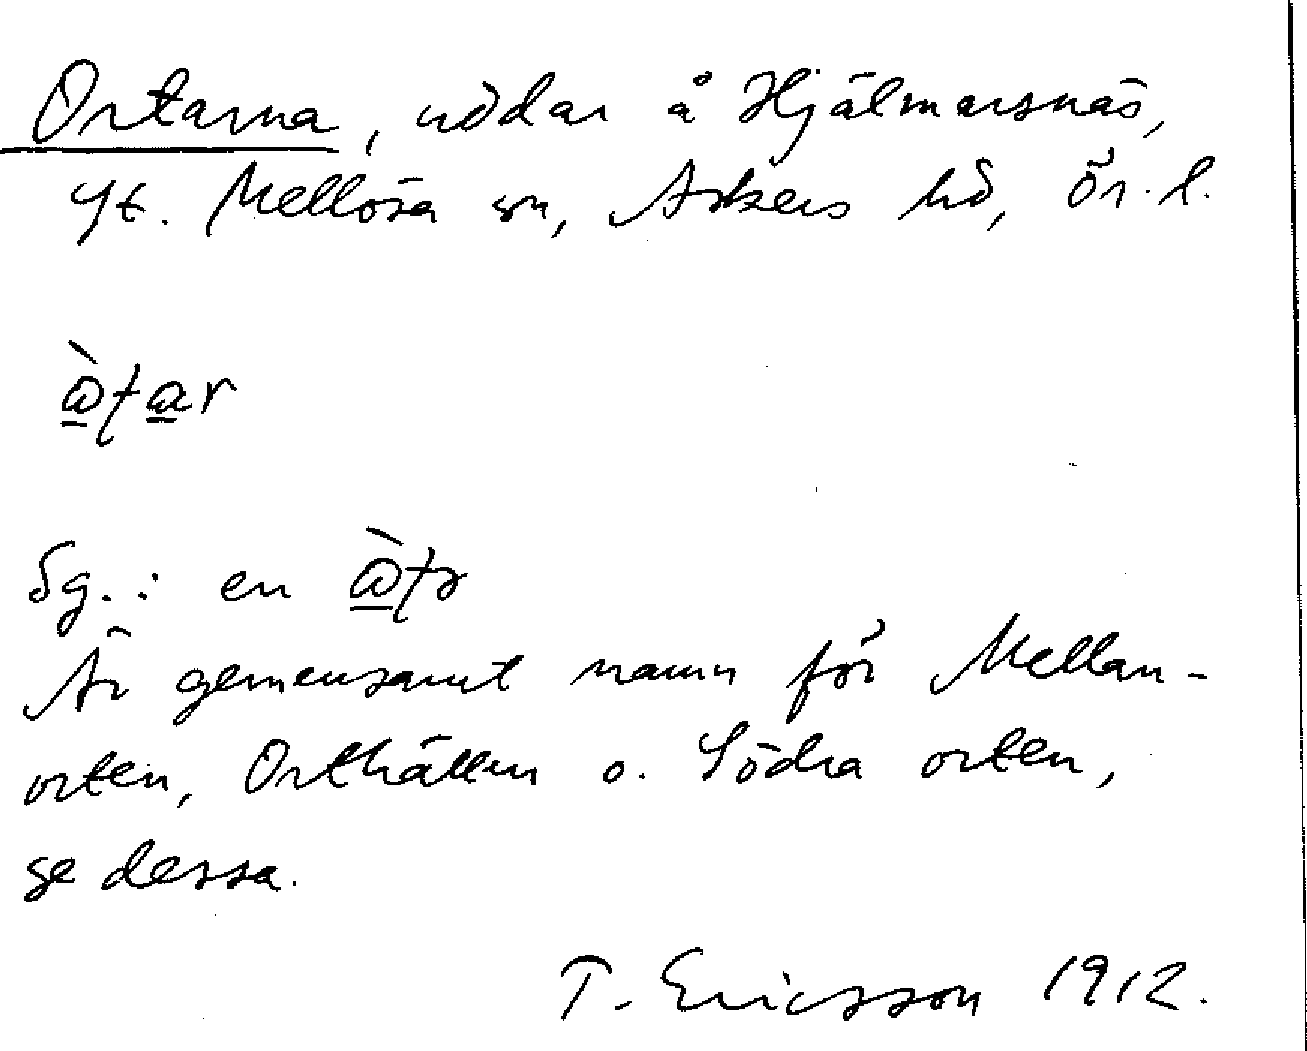 Ortarna, uddar å Hjälmarsnäs,
St. Mellösa sn, Askers hd, Ör. l.
Sg.: en
Är gemensamt namn för Mellan-
orten, Orthällen o. Södra orten,
se dessa.
T. Ericsson 1912.